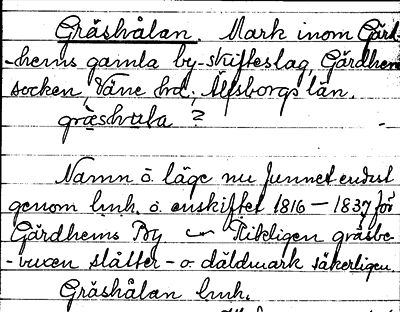 Gräshålan. Mark inom Gärd-
-hems gamla by-skifteslag, Gärdhem
socken, Väne hd, Älfsborgs län.
gräshula ?
Namn o. läge nu funnet endast
genom lmh. o. enskiftet 1816 – 1837 för
Gärdhems By ~ Tikeligen gräsbe-
-vuxen slåtter- o. däldmark säkerligen.
Gräshålan lmh.